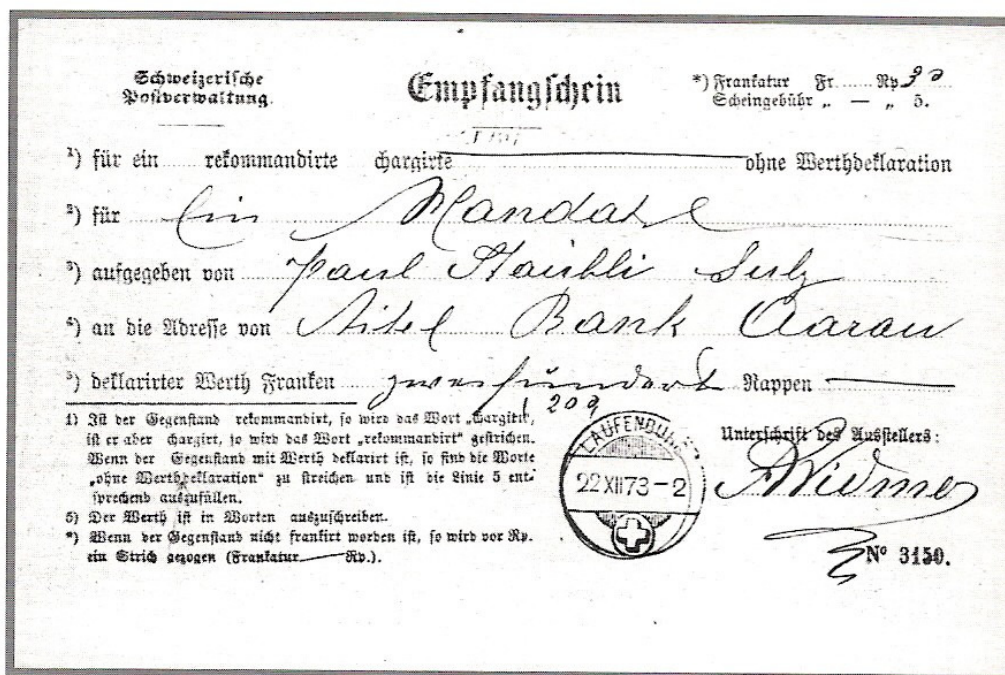 Schweizerische
Postverwaltung.
Empfangschein
*) Frankatur Fr. ...... Rp. 20
Scheingebühr „ — „ 5.
¹) für ein ...... rekommandirte chargirte ohne Werthdeklaration
²) für Ein Mandat
³) aufgegeben von Paul Stäubli Sulz
⁴) an die Adresse von Bank Aarau
⁵) deklarirter Werth Franken zweihundert Rappen
1) Ist der Gegenstand rekommandirt, so wird das Wort „chargirt“,
ist er aber chargirt, so wird das Wort „rekommandirt“ gestrichen.
Wenn der Gegenstand mit Werth deklarirt ist, so sind die Worte
„ohne Werthdeklaration“ zu streichen und ist die Linie 5 ent-
sprechend auszufüllen.
5) Der Werth ist in Worten auszuschreiben.
*) Wenn der Gegenstand nicht frankirt worden ist, so wird vor Rp.
ein Strich gezogen (Frankatur — Rp.).
LAUFENBURG
22 XII 73 - 2
Unterschrift des Ausstellers:
AWidmer
Nº 3150.